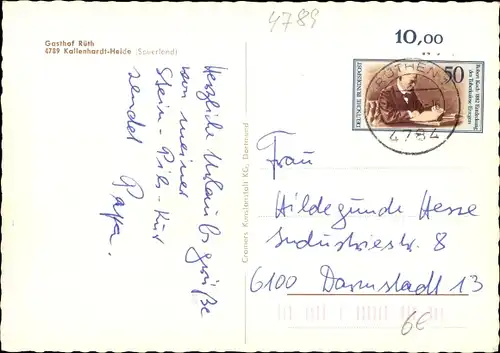 4789
10,00
Gasthof Rüth
4789 Kallenhardt-Heide (Sauerland)
Herzliche Urlaubsgrüße
von meiner
Stein-Pils-Kur
sendet Papa.
Cramers Kunstanstalt KG, Dortmund
DEUTSCHE BUNDESPOST
50
Robert Koch · 1882 Entdeckung
des Tuberkulose-Erregers
RÜTHEN
4784
Frau
Hildegunde Hesse
Industriestr. 8
6100 Darmstadt 13
6€